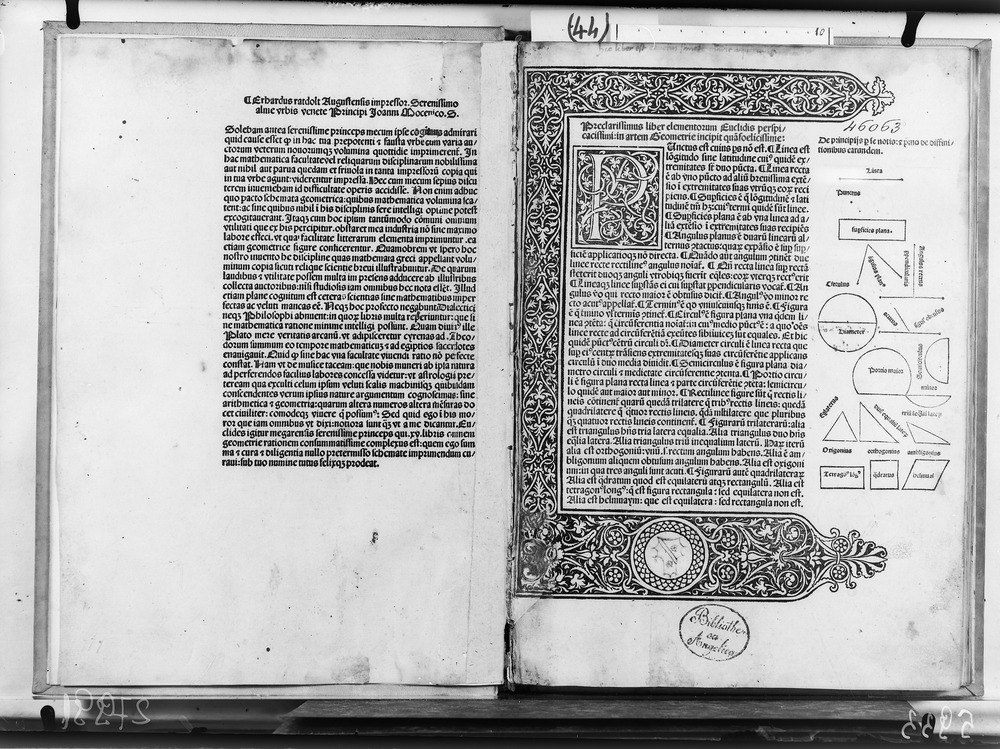 (44)
10
46063
¶ Erhardus ratdolt Augustensis impressor. Serenissimo
alme vrbis venete Principi Joanni Mocenico. S.
Solebam antea serenissime princeps mecum ipse cogitans admirari
quid cause esset ꝙ in hac tua prepotenti ⁊ fausta vrbe cum varia au/
ctorum veterum nouorumqꝫ volumina quottidie imprimerent̃. In
hac mathematica facultate vel reliquarum disciplinarum nobilissima
aut nihil aut parua quedam et friuola in tanta impressorũ copia qui
in tua vrbe agunt: viderentur impressa. Hec cum mecum sepius discu
terem inueniebam id difficultate operis accidisse. Non enim adhuc
quo pacto schemata geometrica: quibus mathematica volumina sca/
tent: ac sine quibus nihil ĩ his disciplinis fere intelligi optime potest
excogitauerant. Itaqꝫ cum hoc ipsum tantũmodo cõmuni omnium
vtilitati que ex his percipitur. obstaret mea industria nõ sine maximo
labore effeci. vt qua facilitate litterarum elementa imprimuntur .ea
etiam geometrice figure conficerentur. Quamobrem vt spero hoc
nostro inuento he discipline quas mathemata greci appellant volu/
minum copia sicuti relique scientie breui illustrabuntur. De quarum
laudibus ⁊ vtilitate possem multa in presens adducere ab illustribus
collecta auctoribus: nisi studiosis iam omnibus hec nota eẽt. Illud
etiam plane cognitum eẽt ceteras scientias sine mathematibus imper
fectas ac veluti mancas eẽ. Neqꝫ hoc profecto negabunt Dialectici
neqꝫ Philosophi abnuent: in quorum libris multa reperiuntur: que si
ne mathematica ratione minime intelligi possunt. Quam diuinus ille
Plato mere veritatis arcanũ. vt adipisceretur cyrenas ad Theo/
dorum summum eo tempore mathematicum ⁊ ad egiptios sacerdotes
enauigauit. Quid ꝙ sine hac vna facultate viuendi ratio nõ perfecte
constat. Nam vt de musice taceam: que nobis muneri ab ipsa natura
ad perferendos facilius labores concessa videtur: vt astrologiã pre/
teream qua exculti celum ipsum veluti scalis machinisqꝫ quibusdam
conscendentes verum ipsius nature argumentum cognoscimus: sine
arithmetica ⁊ geometria: quarum altera numeros altera mẽsuras do
cet ciuiliter: comodeqꝫ viuere qui possumus: Sed quid ego ĩ his mo/
ror que iam omnibus vt dixi: notiora sunt q̃ vt a me dicantur. Eu/
clides igitur megarensis serenissime princeps qui .xv. libris omnem
geometrie rationem consummatissime complexus est: quem ego sum
ma ⁊ cura ⁊ diligentia nullo pretermisso schemate imprimendum cu/
raui: sub tuo numine tutus felixqꝫ prodeat.
Preclarissimus liber elementorum Euclidis perspi/
cacissimi: in artem Geometrie incipit quãfoelicissime:
Punctus est cuius ps nõ est. ¶ Linea est
lõgitudo sine latitudine cui⁹ quidẽ ex/
tremitates sĩt duo pũcta. ¶ Linea recta
ẽ ab vno pũcto ad aliũ breuissima extẽ/
sio ĩ extremitates suas vtrũqꝫ eoꝝ reci
piens. ¶ Supficies ẽ q̃ lõgitudinẽ ⁊ lati
tudinẽ tm̃ hꝫ: cui⁹ termi quidẽ sũt linee.
¶ Supficies plana ẽ ab vna linea ad a/
liã extẽsio ĩ extremitates suas recipiẽs
¶ Angulus planus ẽ duarũ linearũ al/
ternus ꝯtactus: quaꝝ expãsio ẽ sup sup/
ficiẽ applicatioqꝫ nõ directa. ¶ Quãdo aũt angulum ꝯtinẽt due
linee recte rectiline⁹ angulus noĩat̃. ¶ Qñ recta linea sup rectã
steterit duoqꝫ anguli vtrobiqꝫ fuerĩt eq̃les: eoꝝ vterqꝫ rect⁹ erit
¶ Lineaqꝫ linee supstãs ei cui supstat ppendicularis vocat̃. ¶ An
gulus vo qui recto maior ẽ obtusus dicit̃. ¶ Angul⁹ vo minor re
cto acut⁹ appellat̃. ¶ Termin⁹ ẽ qd vniuscuiusqꝫ finis ẽ. ¶ Figura
ẽ q̃ tmino vl terminis ꝯtinet̃. ¶ Circul⁹ ẽ figura plana vna qdem li/
nea ꝯtẽta: q̃ circũferentia noĩat̃: in cui⁹ medio pũct⁹ ẽ: a quo oẽs
linee recte ad circũferẽtiã exeũtes sibiinuicẽ sũt equales. Et hic
quidẽ pũct⁹ cẽtrũ circuli dr̃. ¶ Diameter circuli ẽ linea recta que
sup ei⁹ centꝝ trãsiens extremitatesqꝫ suas circũferẽtie applicans
circulũ ĩ duo media diuidit. ¶ Semicirculus ẽ figura plana dia/
metro circuli ⁊ medietate circũferentie ꝯtenta. ¶ Portio circu/
li ẽ figura plana recta linea ⁊ parte circũferẽtie ꝯtẽta: semicircu/
lo quidẽ aut maior aut minor. ¶ Rectilinee figure sũt q̃ rectis li/
neis cõtinent̃ quarũ quedã trilatere q̃ trib⁹ rectis lineis: quedã
quadrilatere q̃ quatuor rectis lineis. qdã multilatere que pluribus
q̃ quatuor rectis lineis continent̃. ¶ Figurarũ trilaterarũ: alia
est triangulus hñs tria latera equalia. Alia triangulus duo hñs
eq̃lia latera. Alia triangulus triũ inequalium laterũ. Haꝝ iterũ
alia est orthogoniũ: vnũ .s. rectum angulum habens. Alia ẽ am/
bligonium aliquem obtusum angulum habens. Alia est oxigoni
um: in qua tres anguli sunt acuti. ¶ Figurarũ autẽ quadrilateraꝝ
Alia est q̃dratum quod est equilaterũ atqꝫ rectangulũ. Alia est
tetragon⁹ long⁹: q̃ est figura rectangula: sed equilatera non est.
Alia est helmuaym: que est equilatera: sed rectangula non est.
De principijs p se notis: ⁊ pmo de diffini/
tionibus earundem.
Linea
Punctus
supficies plana.
Circulus
Diameter
Portio maior
Semicirculus
minor
Oxigonius
orthogonius
ambligonius
Tetragon⁹ lõg⁹
q̃dratus
helmuaỹ
Bibliothe
ca
Angelica
27981
5953